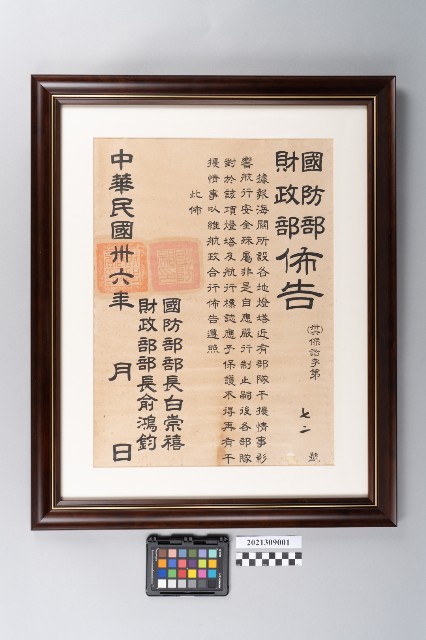 國防部
財政部
佈告
保字第 七二 號
據報海關所設各地燈塔近有部隊干擾情事影
響航行安全殊屬非是自應嚴行制止嗣後各部隊
對於該項燈塔及航行標誌應予保護不得再有干
擾情事以維航政合行佈告遵照
此佈
國防部部長白崇禧
財政部部長俞鴻鈞
中華民國卅六年 月 日
2021309001